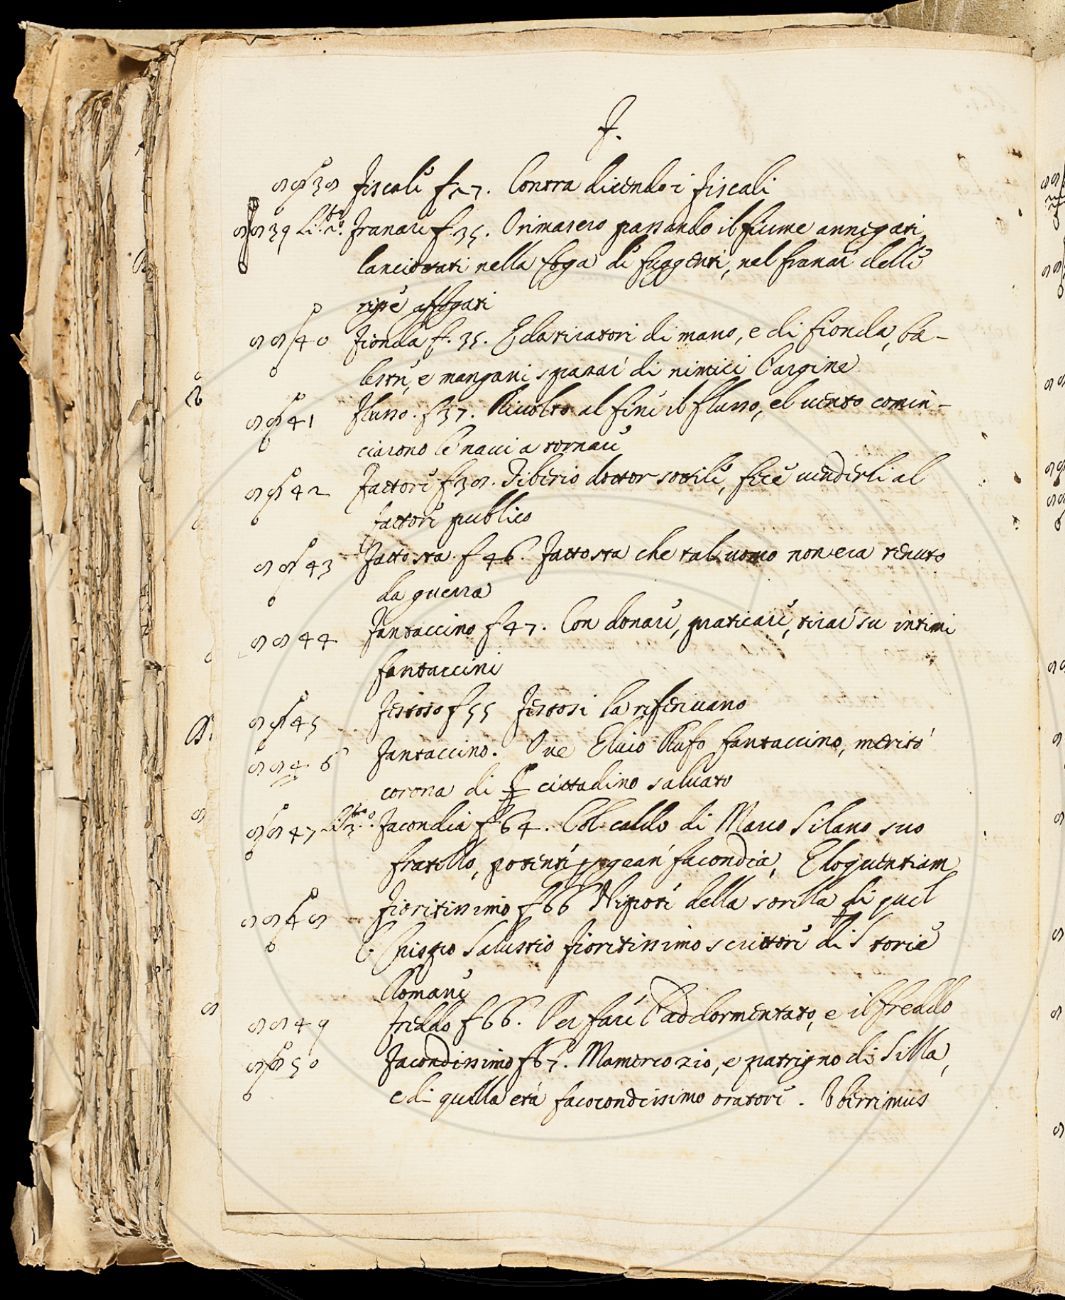 F.
Fiscale f 27. Contra dicendo i Fiscali
39 Franare f 35. O rimasero passando il fiume annegati,
lanciottati nella foga di fuggenti, nel franare delle
ripe affogati
40 Fionda f. 35. E da tiratori di mano, e di fionda, ba-
lestre, e mangani sparare di nimici l'argine
41 Flusso. f 37. Rivolto al fine il flusso, e'l vento comin-
ciarono le navi a tornare
42 Fattore f 38. Tiberio dottor sottile, fece venderli al
fattore publico
43 Fattosta. f 46. Fattosta che tal uomo non era tenuto
da guerra
44 Fantaccino f 47. Con donare, praticare, tirar su intimi
fantaccini
45 Festoso f 55 Festosi la riferivano
46 Fantaccino. Ove Elvio Rufo fantaccino, meritò
corona di cittadino salvato
47 Facondia f 64. Col caldo di Marco Silano suo
fratello, potente per gran facondia, Eloquentiam
48 Fioritissimo f 66 Nipote della sorella di quel
C. Crispo Salustio fioritissimo scrittore di Storie
Romane
49 Freddo f 66. Per fare l'addormentato, e il freddo
50 Facondissimo f 67. Mamerco zio, e patrigno di Silla,
e di quella età facocondissimo oratore. Uberrimus